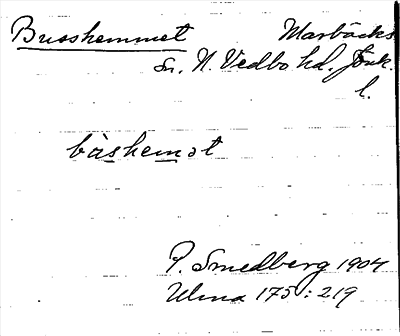 Busshemmet Marbäcks
sn. N. Vedbo hd. Jönk.
l.
bùshemət
P. Smedberg 1904
Ulma 175:219